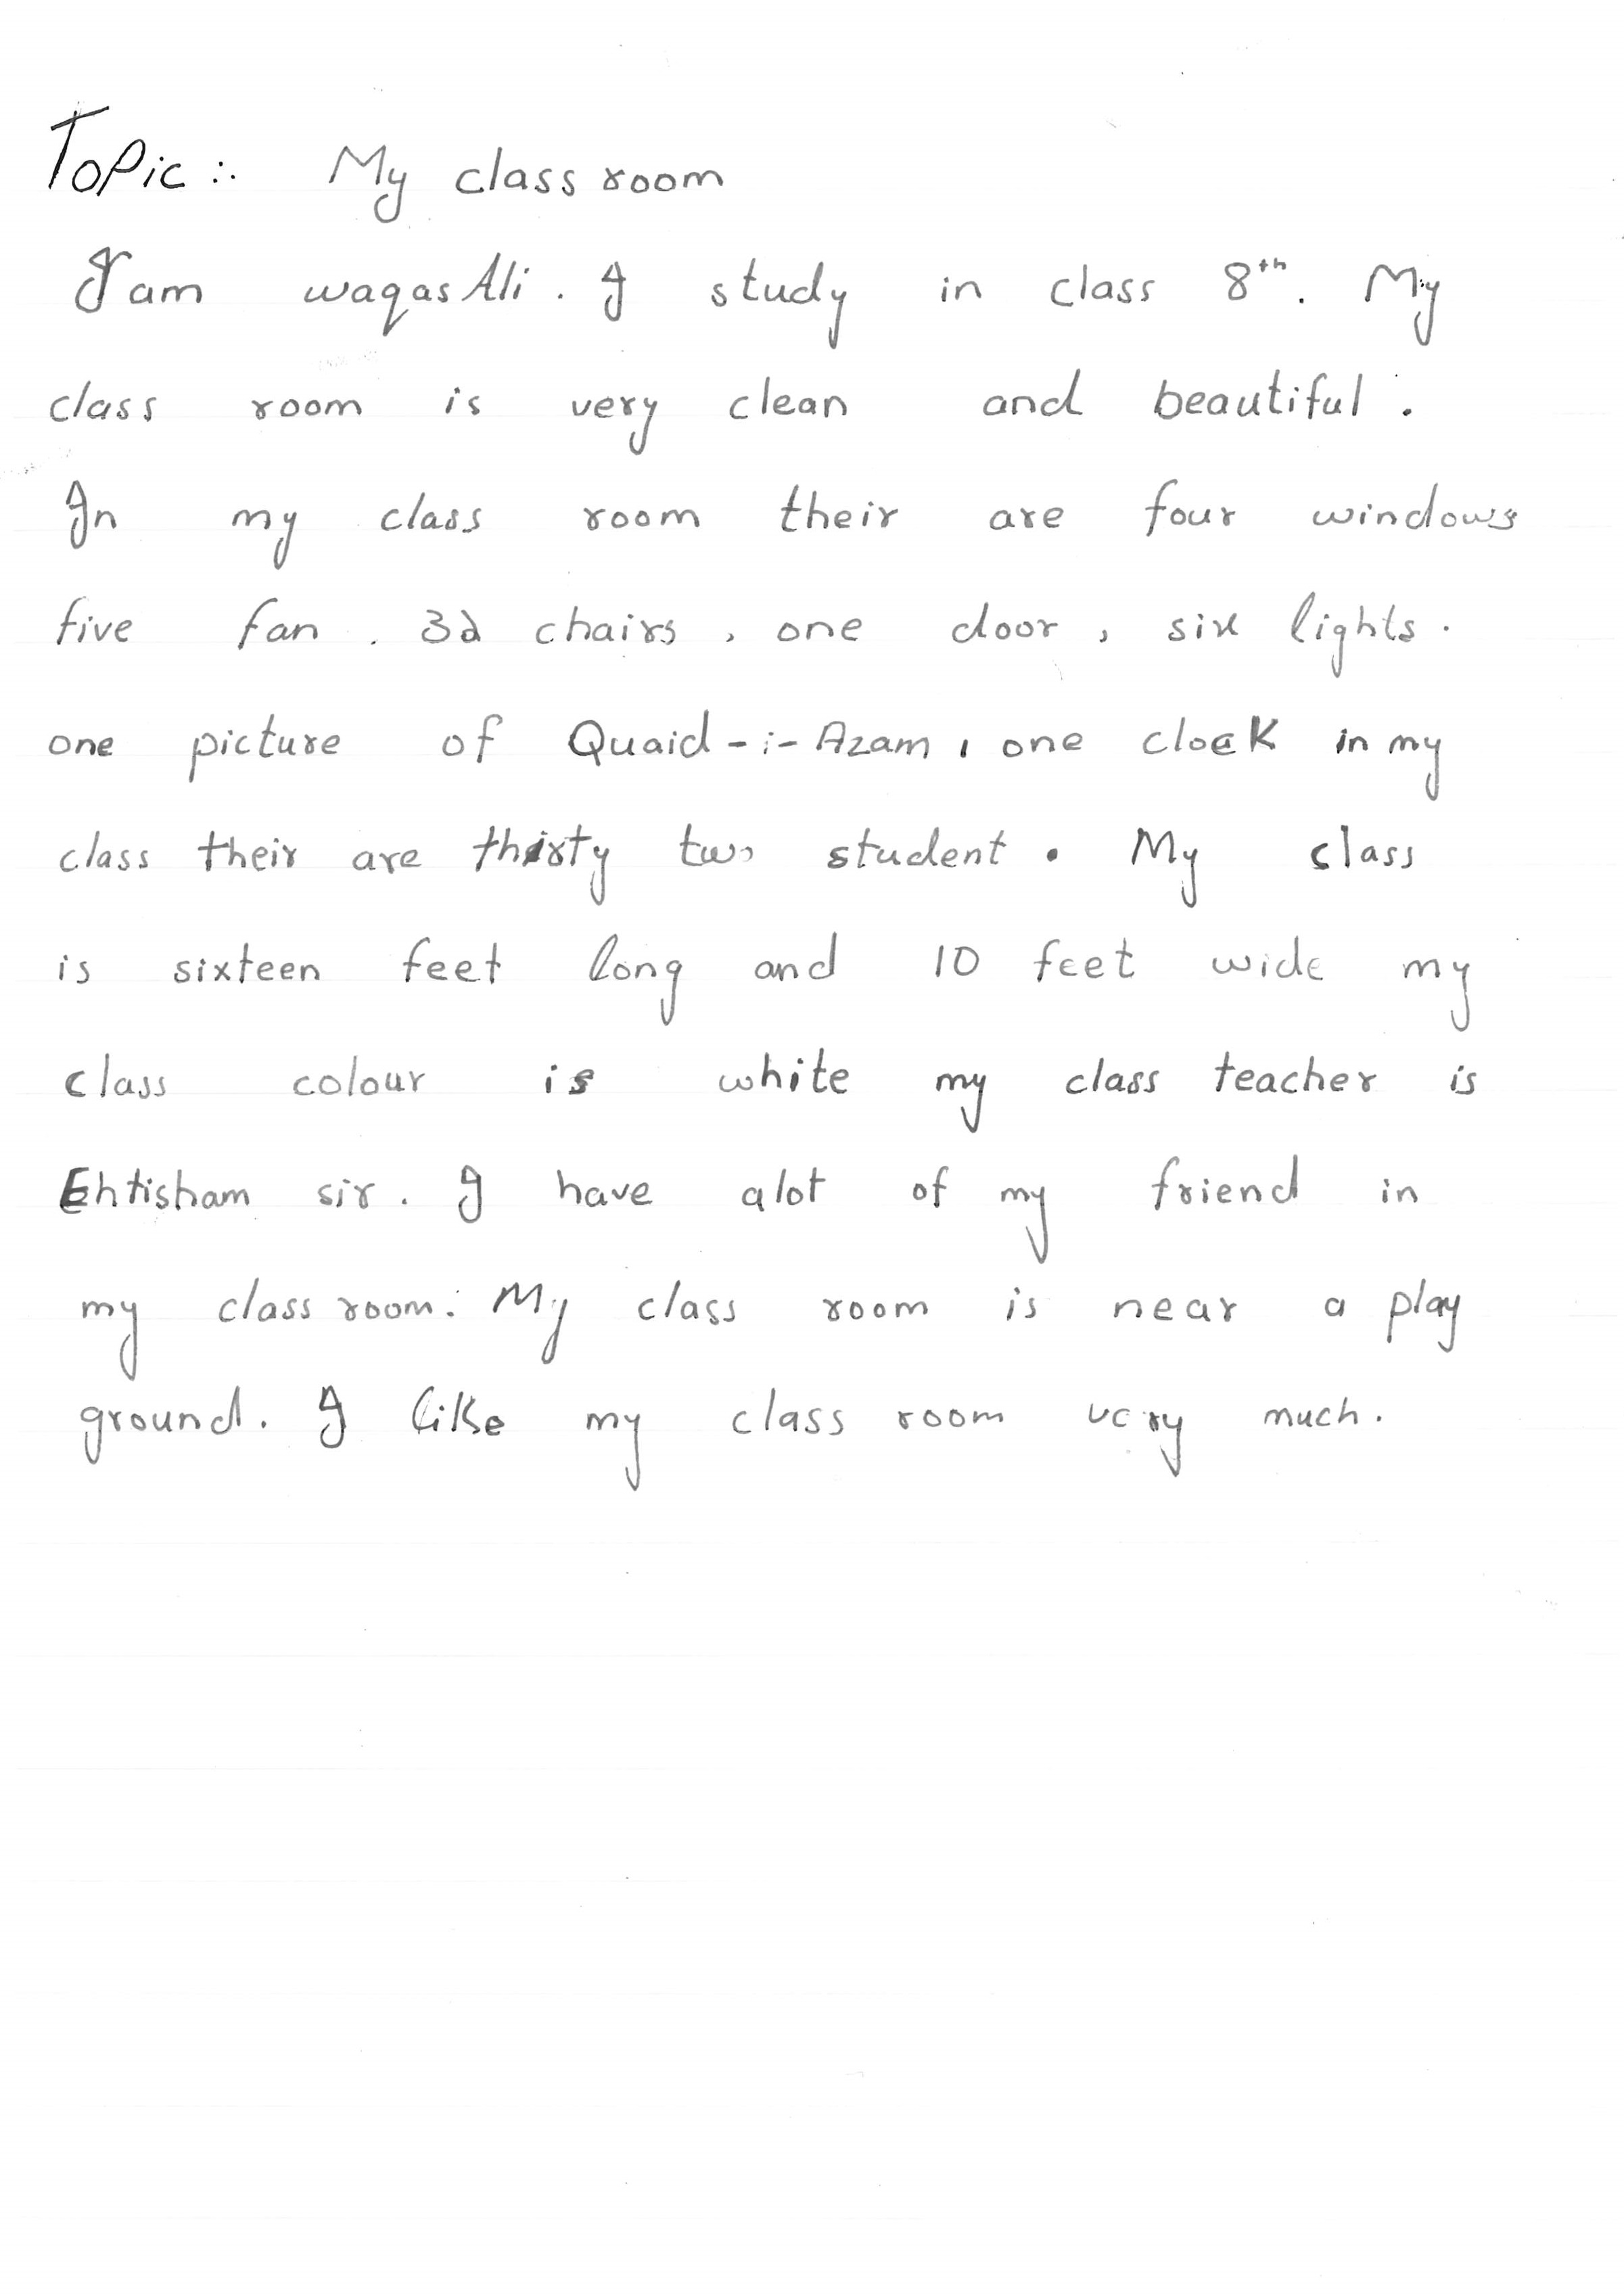 Topic :. My class room
I am waqas Ali . I study in class 8th. My
class room is very clean and beautiful .
In my class room their are four windows
five fan . 32 chairs , one door , six lights .
one picture of Quaid - i - Azam , one clock in my
class their are thirty two student . My class
is sixteen feet long and 10 feet wide my
class colour is white my class teacher is
Ehtisham sir . I have alot of my friend in
my class room . My class room is near a play
ground . I like my class room very much .